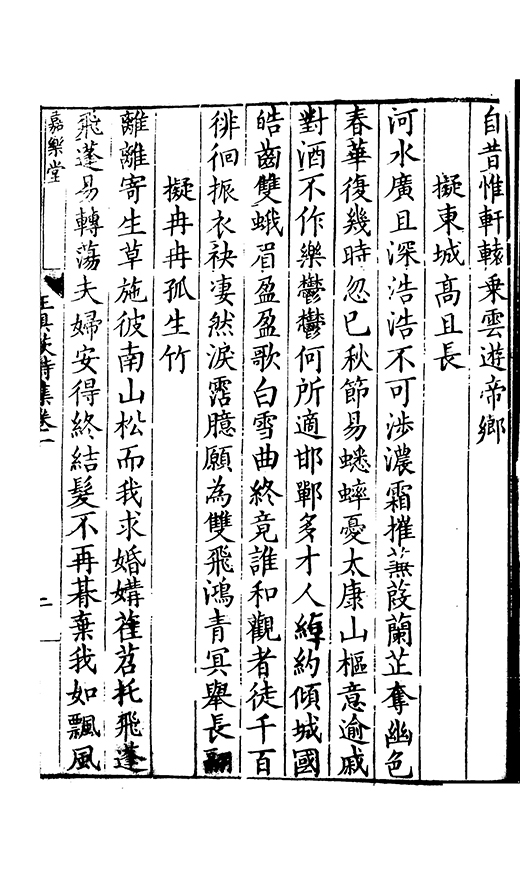 自昔惟軒轅乗雲遊帝鄉
擬東城高且長
河水廣且深浩浩不可渉濃霜摧蕪葭蘭芷奪幽色
春華復幾時忽已秋節易蟋蟀憂太康山樞意逾戚
對酒不作樂鬱鬱何所適邯鄲多才人綽約傾城國
皓齒雙蛾眉盈盈歌白雪曲終竟誰和觀者徒千百
徘徊振衣袂凄然淚霑臆願為雙飛鴻青冥舉長翮
擬冉冉孤生竹
離離寄生草施彼南山松而我求婚媾荏苕托飛蓬
飛蓬易轉蕩夫婦安得終結髮不再朞棄我如飄風
嘉樂堂
詩集卷一
二